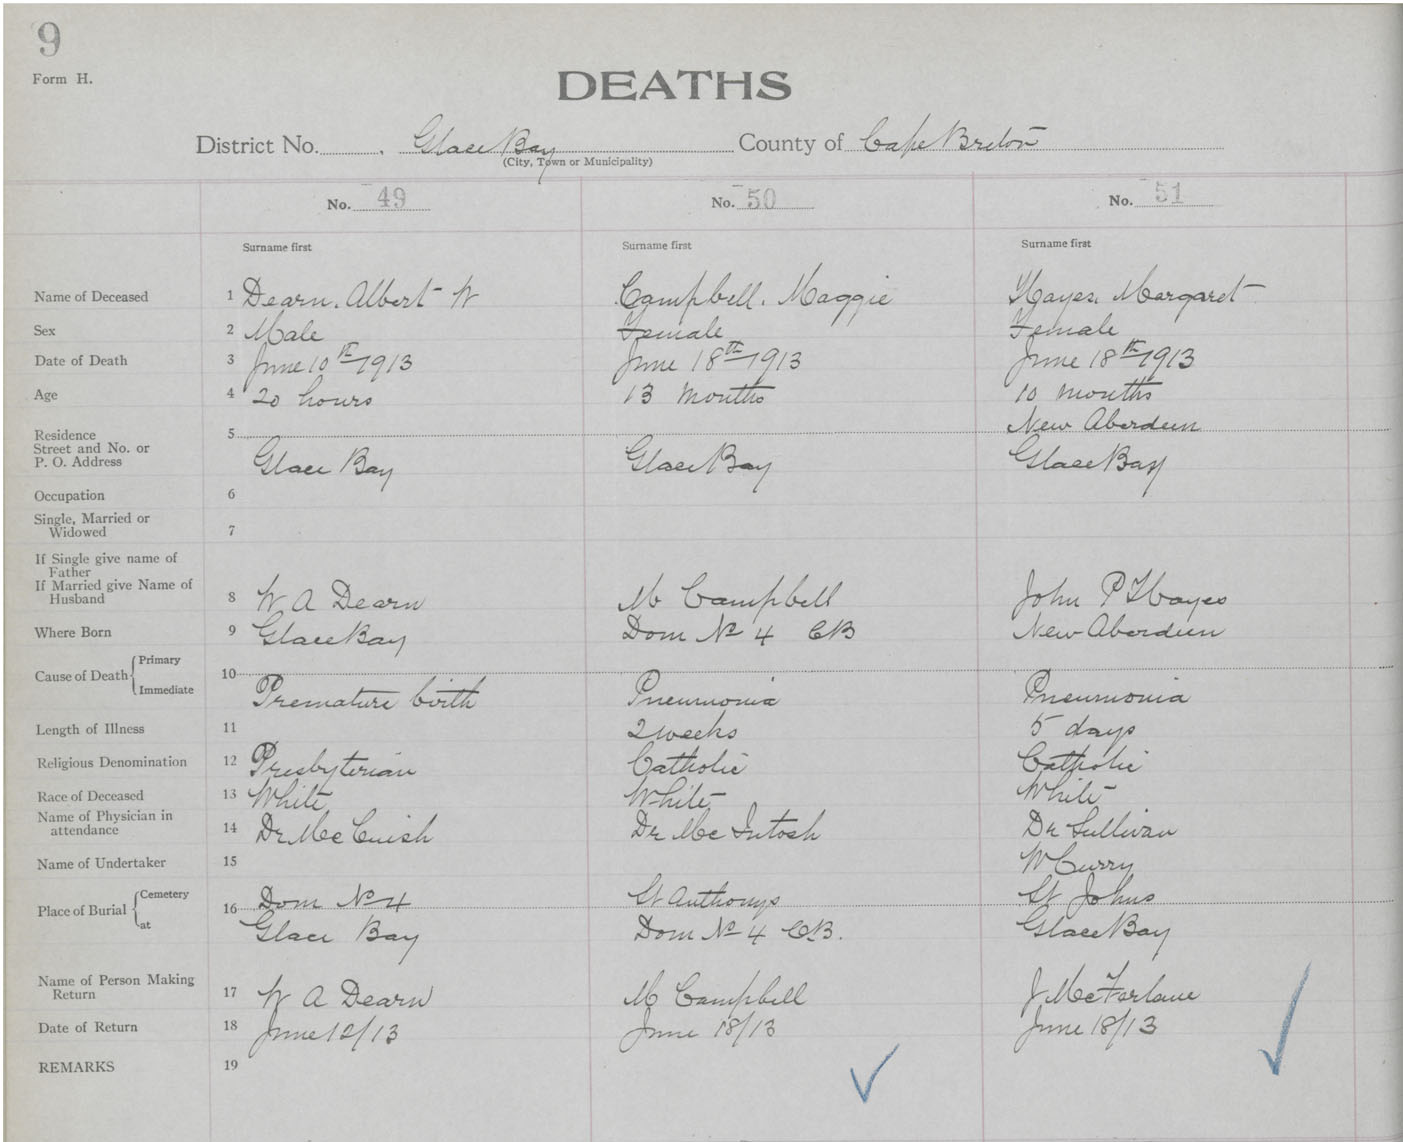 9
Form H.
DEATHS
District No. Glace Bay County of Cape Breton
(City, Town or Municipality)
No. 49 No. 50 No. 51
Surname first Surname first Surname first
Name of Deceased 1 Dearn, Albert W Campbell, Maggie Hayes, Margaret
Sex 2 Male Female Female
Date of Death 3 June 10th 1913 June 18th 1913 June 18th 1913
Age 4 20 hours 13 months 10 months
Residence 5 New Aberdeen
Street and No. or
P. O. Address Glace Bay Glace Bay Glace Bay
Occupation 6
Single, Married or
Widowed 7
If Single give name of
Father
If Married give Name of
Husband 8 W A Dearn M Campbell John P Hayes
Where Born 9 Glace Bay Dom No 4 CB New Aberdeen
Cause of Death Primary 10
Immediate Premature birth Pneumonia Pneumonia
Length of Illness 11 2 weeks 5 days
Religious Denomination 12 Presbyterian Catholic Catholic
Race of Deceased 13 White White White
Name of Physician in
attendance 14 Dr McCuish Dr McIntosh Dr Sullivan
Name of Undertaker 15 W Curry
Place of Burial Cemetery 16 Dom No 4 St Anthonys St Johns
at Glace Bay Dom No 4 C.B. Glace Bay
Name of Person Making
Return 17 W A Dearn M Campbell J McFarlane
Date of Return 18 June 12/13 June 18/13 June 18/13
REMARKS 19